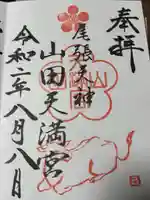 奉拝
尾張天神
山田天満宮
令和二年八月八日